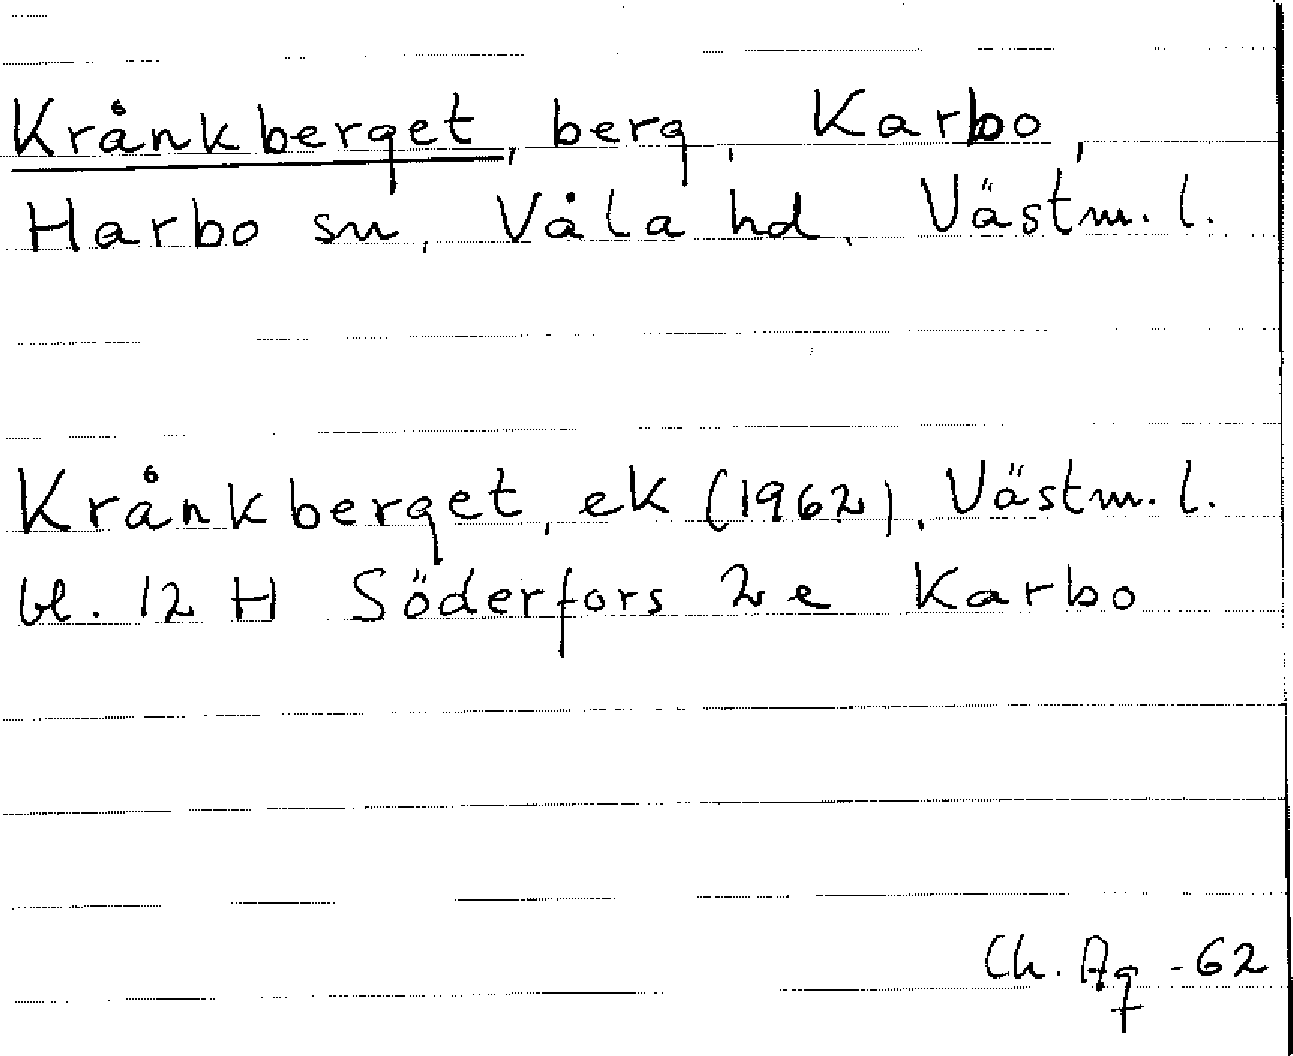 Krånkberget, berg, Karbo,
Harbo sn, Våla hd, Västm. l.
Krånkberget, ek (1962), Västm. l.
bl. 12 H Söderfors 2 e Karbo
Ch. Ag -62